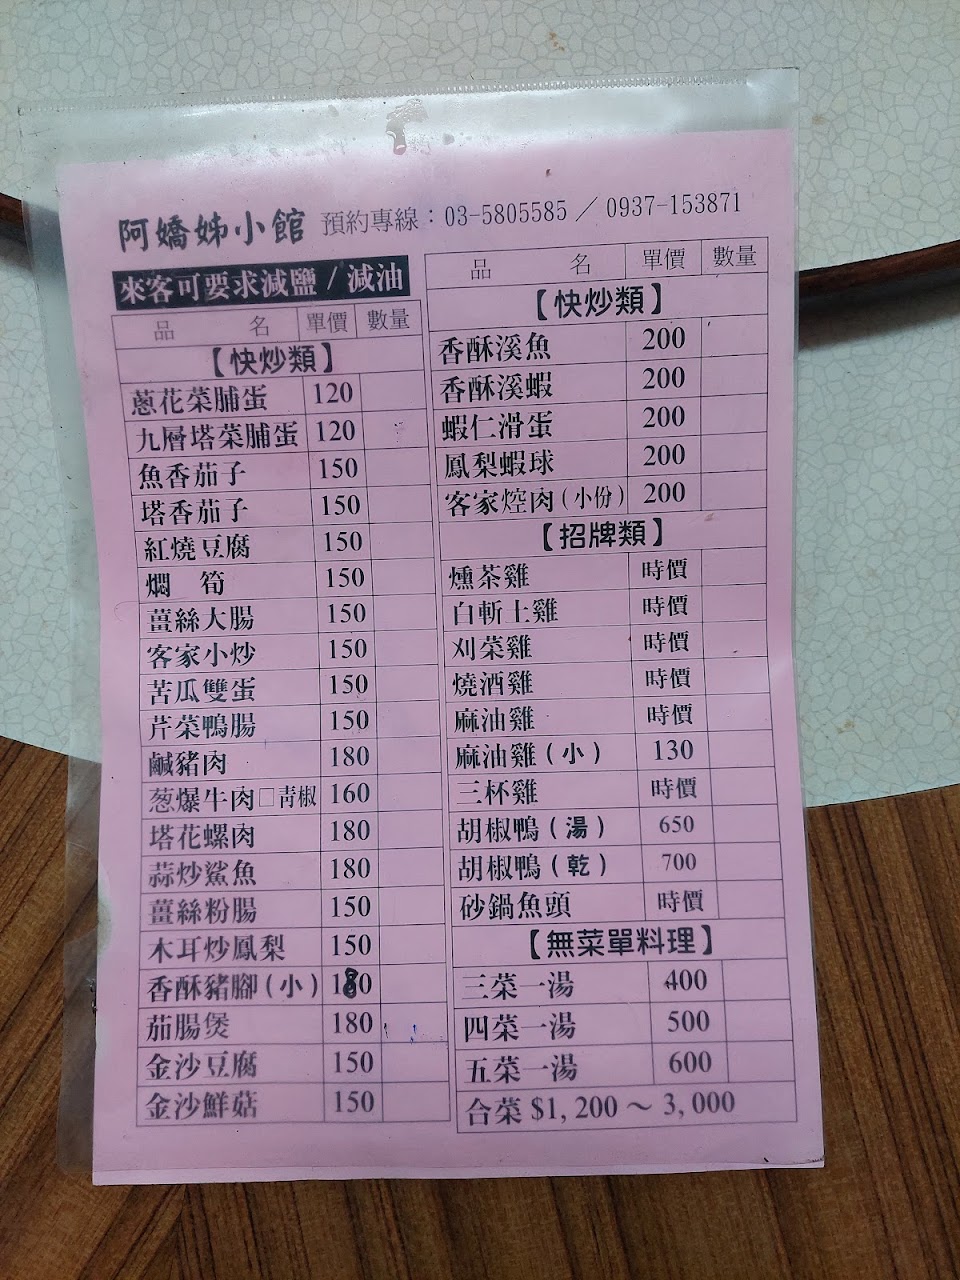 阿嬌姊小館 預約專線：03-5805585／0937-153871
來客可要求減鹽 / 減油
品 名 單價 數量
【快炒類】
蔥花菜脯蛋 120
九層塔菜脯蛋 120
魚香茄子 150
塔香茄子 150
紅燒豆腐 150
燜 筍 150
薑絲大腸 150
客家小炒 150
苦瓜雙蛋 150
芹菜鴨腸 150
鹹豬肉 180
葱爆牛肉□青椒 160
塔花螺肉 180
蒜炒鯊魚 180
薑絲粉腸 150
木耳炒鳳梨 150
香酥豬腳(小) 180
茄腸煲 180
金沙豆腐 150
金沙鮮菇 150
品 名 單價 數量
【快炒類】
香酥溪魚 200
香酥溪蝦 200
蝦仁滑蛋 200
鳳梨蝦球 200
客家焢肉(小份) 200
【招牌類】
燻茶雞 時價
白斬土雞 時價
刈菜雞 時價
燒酒雞 時價
麻油雞 時價
麻油雞(小) 130
三杯雞 時價
胡椒鴨(湯) 650
胡椒鴨(乾) 700
砂鍋魚頭 時價
【無菜單料理】
三菜一湯 400
四菜一湯 500
五菜一湯 600
合菜 $1,200～3,000